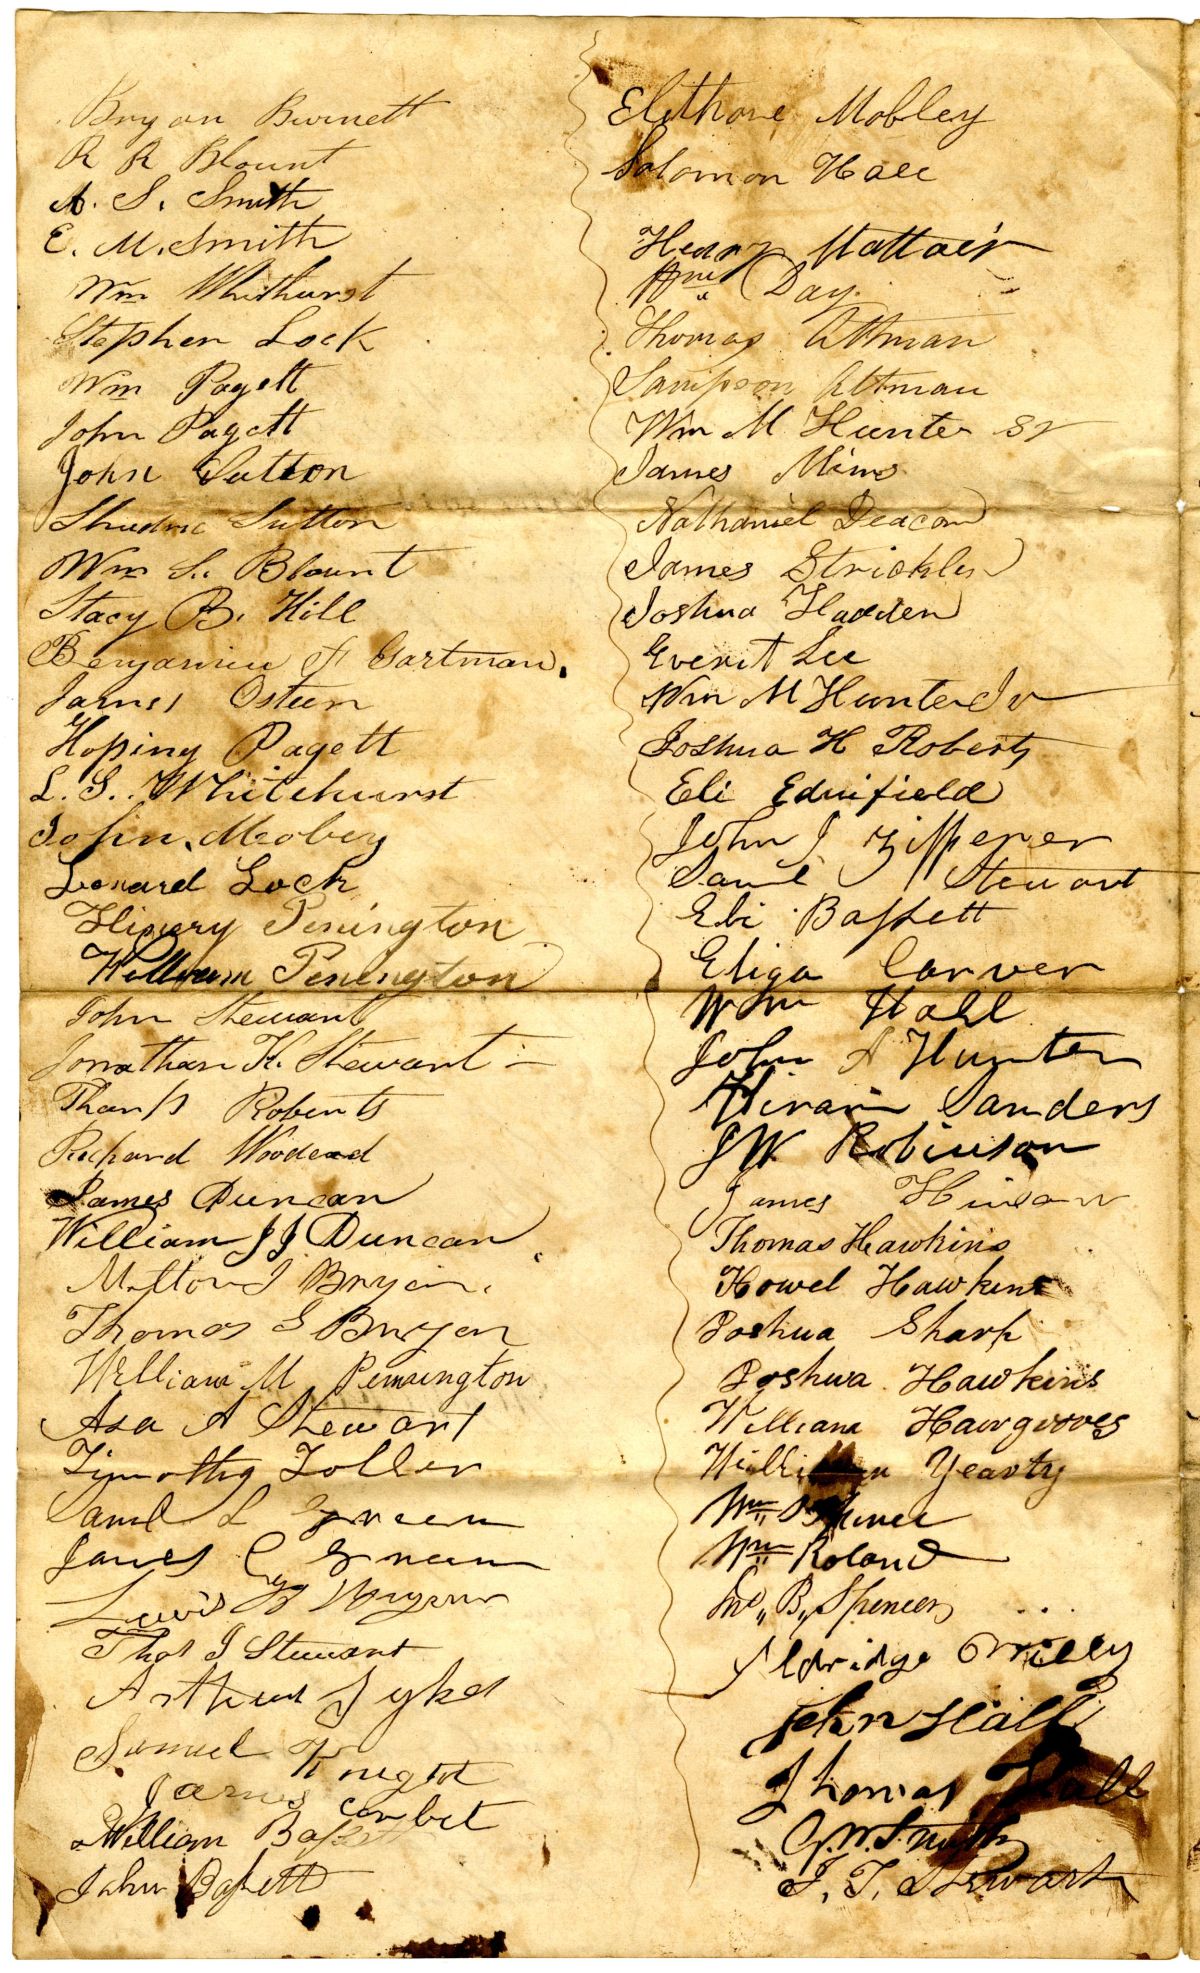 Bryan Burnett
R R Blount
A. S. Smith
E. M. Smith
Wm Whithurst
Stephen Lock
Wm Pagett
John Pagett
John Sutton
Shadric Sutton
Wm S. Blount
Stacy B. Hill
Benjamin F Gartman.
James Osteen
Hoping Pagett
L. S. Whitehurst
John Mobey
Leonard Lock
Hinery Penington
William Penington
John Stewart
Jonathan H. Stewart
Roberts
Richard Woodead
James Duncan
William J J Duncan
Milton J Bryan
Thomas S Bryan
William M Pennington
Asa A Stewart
Timothy Toller
Saml L Green
James C Green
Lewis
Thos J Stewart
Arthur Sykes
Samuel Knight
James Combet
William Bassett
John Bassett
Mobley
Solomon Hall
Henry Mattair
Wm Day
Thomas Altman
Sampson Altman
Wm M Hunter Sr
James Mims
Nathaniel Deacon
James Stricklin
Joshua Hadden
Everit Lee
Wm M Hunter Jr
Joshua H Roberts
Eli Ednifield
John J Zipperer
Saml J Stewart
Eli Bassett
Eliga Carver
Wm Hall
John A Hunter
Hiram Sanders
J W Robinson
James Hinson
Thomas Hawkins
Howel Hawkins
Joshua Sharp
Joshua Hawkins
William Hawgroves
William Yearty
Wm
Wm Roland
Jno B Spencer
Aldridge
John Hall
Thomas Hall
G. W. Smith
J. T. Stewart